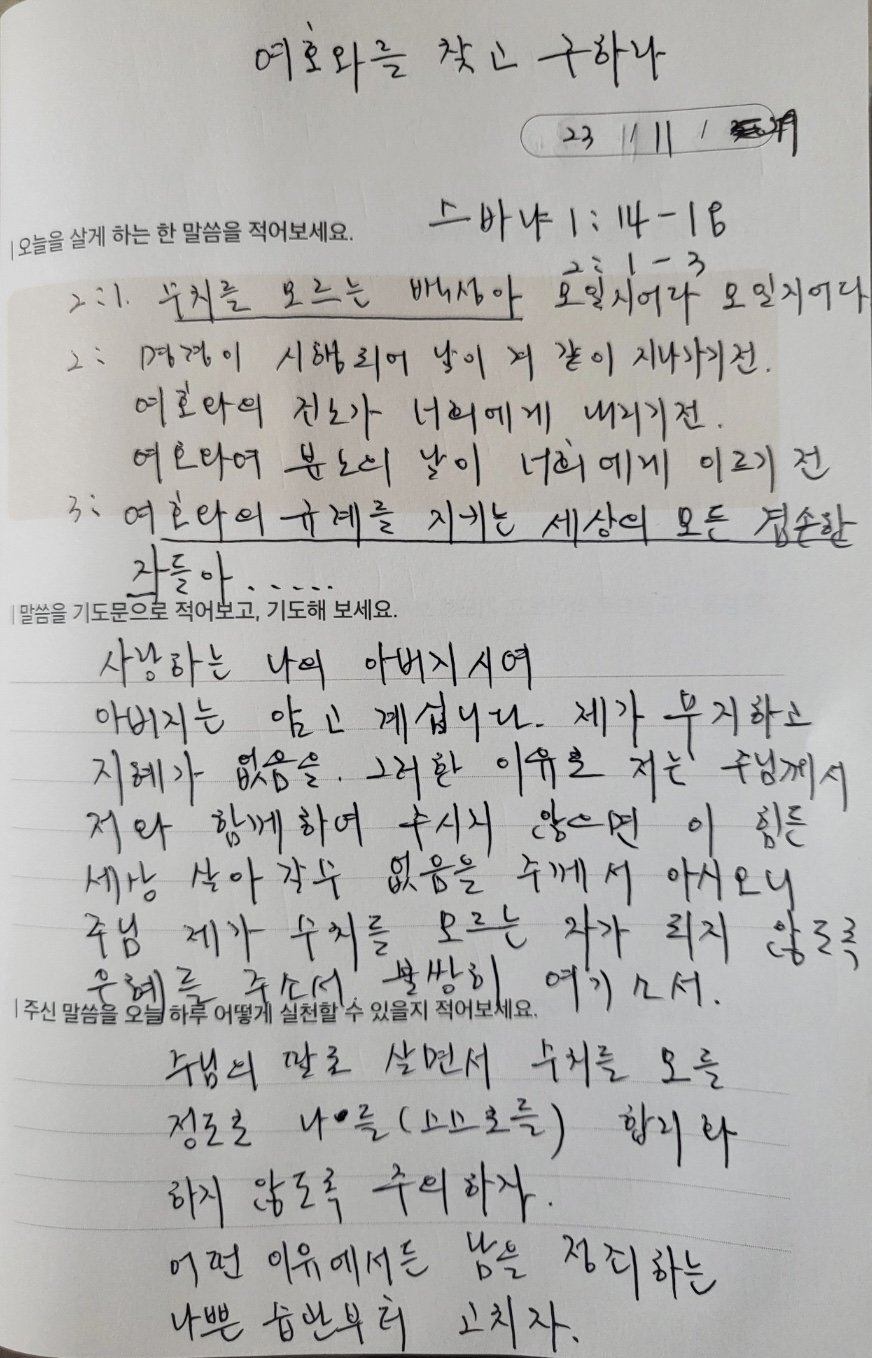 여호와를 찾고 구하라
23 / 11 /
스바냐 1 : 14 - 18
| 오늘을 살게 하는 한 말씀을 적어보세요.
2 : 1 - 3
2:1. 수치를 모르는 백성아 모일지어다 모일지어다
2: 명령이 시행되어 날이 겨 같이 지나가기전.
여호와의 진노가 너희에게 내리기전.
여호와여 분노의 날이 너희에게 이르기 전
3: 여호와의 규례를 지키는 세상의 모든 겸손한
자들아 . . . . . .
| 말씀을 기도문으로 적어보고, 기도해 보세요.
사랑하는 나의 아버지시여
아버지는 알고 계십니다. 제가 무지하고
지혜가 없음을. 그러한 이유로 저는 주님께서
저와 함께하여 주시지 않으면 이 힘든
세상 살아갈수 없음을 주께서 아시오니
주님 제가 수치를 모르는 자가 되지 않도록
은혜를 주소서. 불쌍히 여기소서.
| 주신 말씀을 오늘 하루 어떻게 실천할 수 있을지 적어보세요.
주님의 딸로 살면서 수치를 모를
정도로 나를 (스스로를) 합리화
하지 않도록 주의하자.
어떤 이유에서든 남을 정죄하는
나쁜 습관부터 고치자.